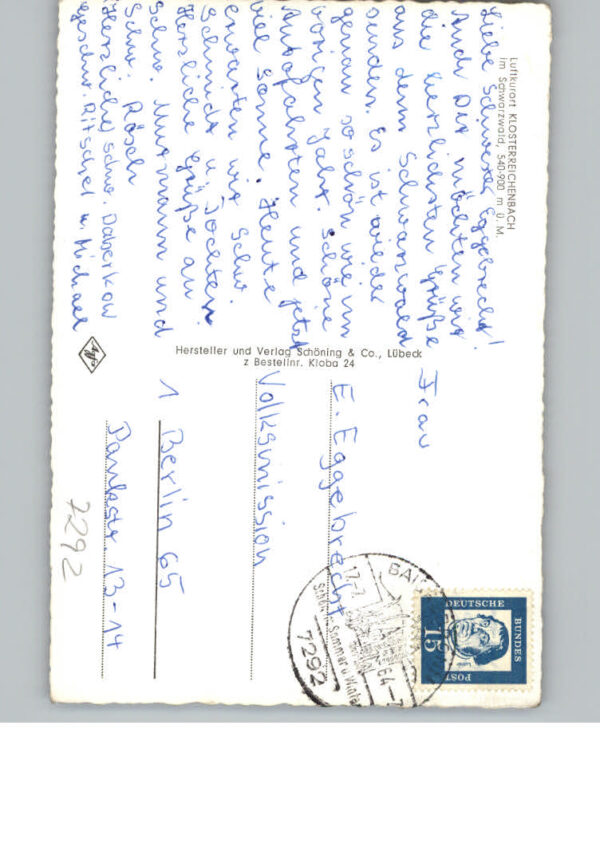 Luftkurort KLOSTERREICHENBACH
im Schwarzwald, 540-900 m ü. M.
Liebe Schwester Eggebrecht!
Auch Dir möchten wir
die herzlichsten Grüße
aus dem Schwarzwald
senden. Es ist wieder
genau so schön wie im
vorigen Jahr. Schöne
Autofahrten und jetzt
viel Sonne. Heute
erwarten wir Schw.
Schmidt u. Tochter.
Herzliche Grüße an
Schw. Murmann und
Schw. Rösch
(Herzliche) Schw. Daberkow
geschw. Ritschel u. Michael
Agfa
Hersteller und Verlag Schöning & Co., Lübeck
z Bestellnr. Kloba 24
Frau
E. Eggebrecht
Volksmission
1 Berlin 65
Paulstr. 13-14
7292
DEUTSCHE
BUNDES
POST
15
Luther
17.7.64-7
Schön in Sommer u Winter
7292